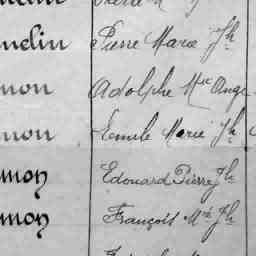 melin Pierre Marie Jh
mon Adolphe Mie Ange
mon Emile Marie Jh
mon Edouard Pierre Jh
mon François Mie Jh